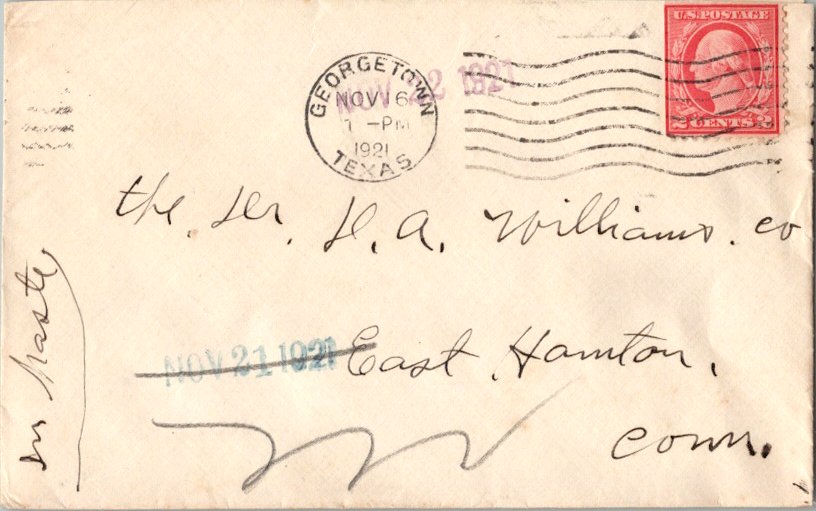 U.S. POSTAGE
2 CENTS 2
GEORGETOWN
NOV 6
1 - PM
1921
TEXAS
NOV 22 1921
the. Dr. D. A. Williams. co
NOV 21 1921
East. Hamton.
Conn.
in haste